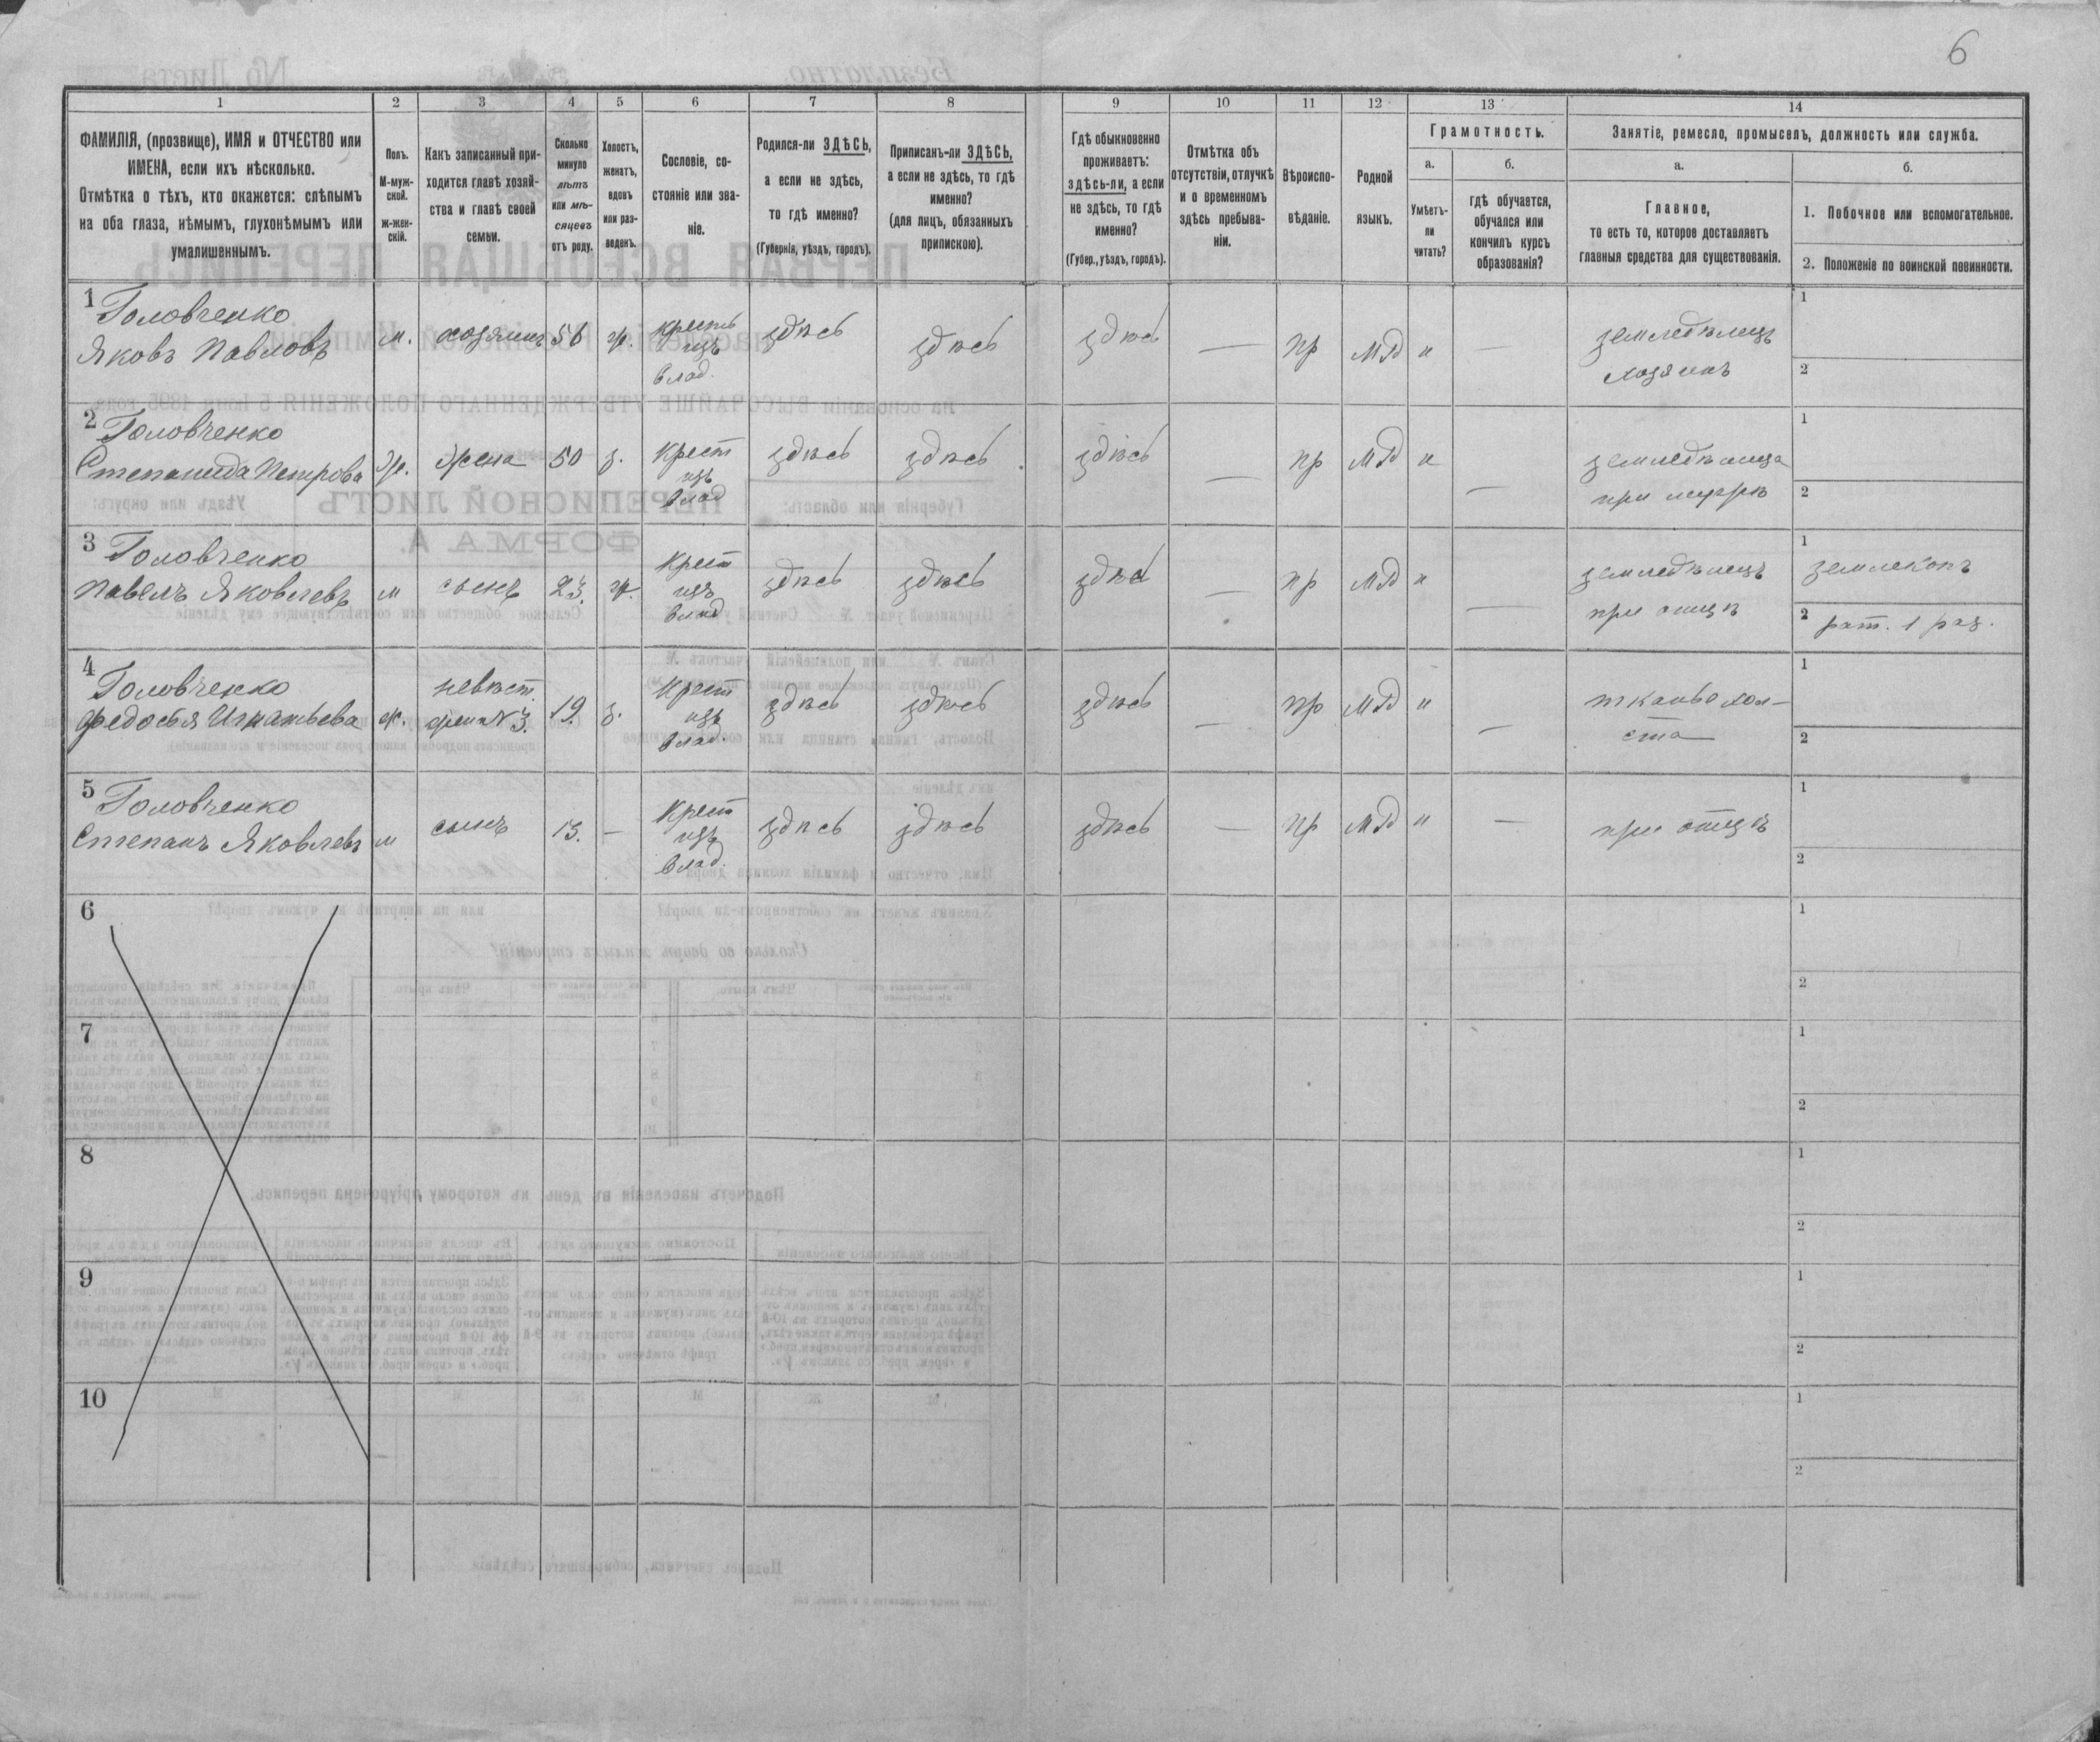 6
1 2 3 4 5 6 7 8 9 10 11 12 13 14
ФАМИЛІЯ, (прозвище), ИМЯ и ОТЧЕСТВО или
ИМЕНА, если ихъ нѣсколько.
Отмѣтка о тѣхъ, кто окажется: слѣпымъ
на оба глаза, нѣмымъ, глухонѣмымъ или
умалишеннымъ.
Полъ.
М-муж-
ской.
ж-жен-
скій.
Какъ записанный при-
ходится главѣ хозяй-
ства и главѣ своей
семьи.
Сколько
минуло
лѣтъ
или мѣ-
сяцевъ
отъ роду.
Холостъ,
женатъ,
вдовъ
или раз-
веденъ.
Сословіе, со-
стояніе или зва-
ніе.
Родился-ли ЗДѢСЬ,
а если не здѣсь,
то гдѣ именно?
(Губернія, уѣздъ, городъ).
Приписанъ-ли ЗДѢСЬ,
а если не здѣсь, то гдѣ
именно?
(для лицъ, обязанныхъ
припискою).
Гдѣ обыкновенно
проживаетъ:
здѣсь-ли, а если
не здѣсь, то гдѣ
именно?
(Губер., уѣздъ, городъ).
Отмѣтка объ
отсутствіи, отлучкѣ
и о временномъ
здѣсь пребыва-
ніи.
Вѣроиспо-
вѣданіе.
Родной
языкъ.
Грамотность.
а. б.
Умѣетъ-
ли
читать?
гдѣ обучается,
обучался или
кончилъ курсъ
образованія?
Занятіе, ремесло, промыселъ, должность или служба.
а. б.
Главное,
то есть то, которое доставляетъ
главныя средства для существованія.
1. Побочное или вспомогательное.
2. Положеніе по воинской повинности.
1 Головченко
Яковъ Павловъ м. хозяинъ 56 ж. крест
изъ
влад. здѣсь здѣсь здѣсь — пр МР н — земледѣлецъ
хозяинъ
1
2
2 Головченко
Степанида Петрова ж. жена 50 з. крест
изъ
влад здѣсь здѣсь здѣсь — пр МР н — земледѣлица
при мужѣ
1
2
3 Головченко
Павелъ Яковлевъ м сынъ 23. ж. крест
изъ
влад здѣсь здѣсь здѣсь — пр МР н — земледѣлецъ
при отцѣ
1 землекопъ
2 рат. 1 раз.
4 Головченко
Федосья Игнатьева ж. невѣст.
жена №3. 19. з. крест
изъ
влад. здѣсь здѣсь здѣсь — пр МР н — тканье хол-
ста
1
2
5 Головченко
Степанъ Яковлевъ м сынъ 13. — крест
изъ
влад. здѣсь здѣсь здѣсь — пр МР н — при отцѣ
1
2
6
1
2
7
1
2
8
1
2
9
1
2
10
1
2